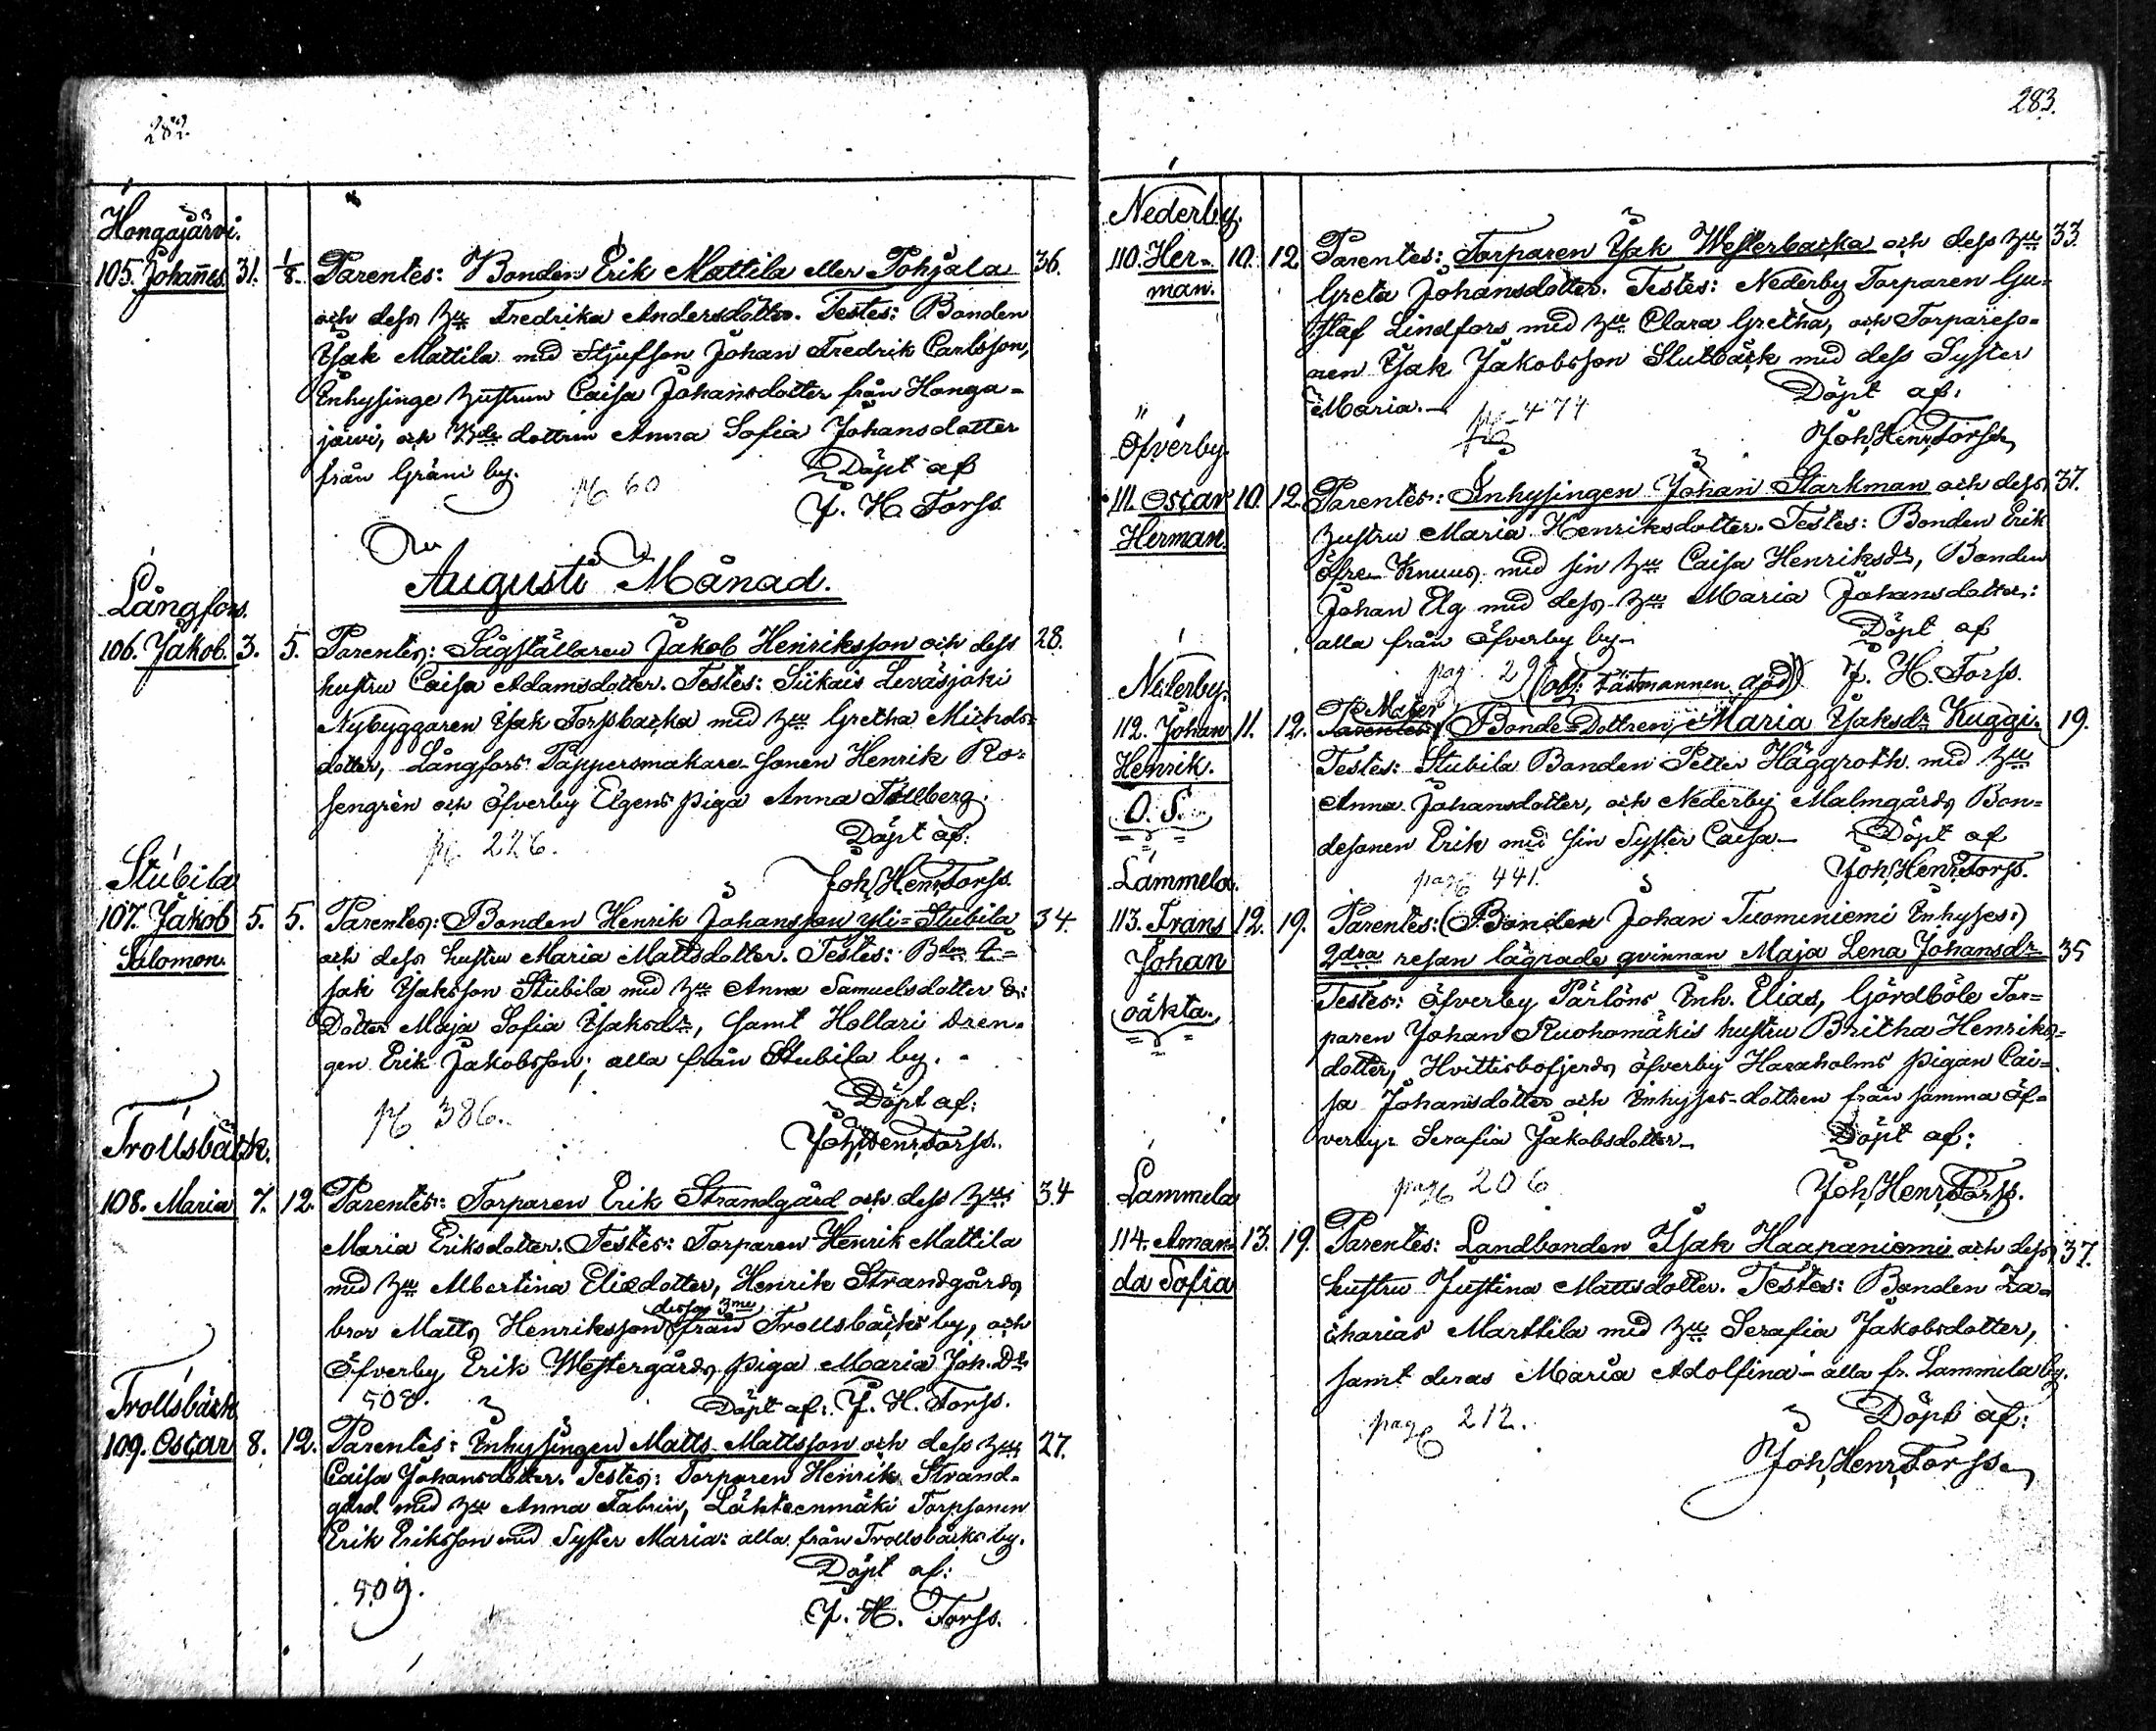 282.
Hongajärvi.
105. Johañes. 31. 1/8. Parentes: Bonden Erik Mattila eller Pohjala 36.
och dess Hu Fredrika Andersdotter. Testes: Bonden
Isak Mattila med Stjufson Johan Fredrik Carlsson,
Inhysinge hustrun Caisa Johansdotter från Honga=
järvi, och dottren Anna Sofia Johansdotter
från Gräni by. Döpt af
pg 60
J. H. Forss.
Augusti Månad.
Långfors.
106. Jakob. 3. 5. Parentes: Sågställaren Jakob Henriksson och dess 28.
hustru Caisa Adamsdotter. Testes: Siikais Leväsjoki
Nybyggaren Isak Forssbacka med Hu Gretha Michels=
dotter, Långfors Pappersmakare-sonen Henrik Ro=
sengrèn och Öfverby Elgens piga Anna Tallberg.
pg 226. Döpt af:
Joh. Henr. Forss.
Stubila
107. Jakob 5. 5. Parentes: Bonden Henrik Johansson yli=Stubila 34.
Salomon.
och dess hustru Maria Mattsdotter. Testes: Bdn I=
sak Isaksson Stubila med Hu Anna Samuelsdotter &:
Dotter Maja Sofia Isaksdr, samt Hollari Dren=
gen Erik Jakobsson; alla från Stubila by.
pg 386. Döpt af:
Joh. Henr. Forss.
Trollsbäck.
108. Maria 7. 12. Parentes: Torparen Erik Strandgård och dess Hu 34
Maria Eriksdotter. Testes: Torparen Henrik Mattila
med Hu Albertina Eliedotter, Henrik Strandgårds
dessa 3me
bror Matts Henriksson från Trollsbäcks by, och
Öfverby Erik Westergårds piga Maria Joh. Dr
508. Döpt af: J. H. Forss.
Trollsbäck
109. Oscar 8. 12. Parentes: Inhysingen Matts Mattsson och dess Hu 27.
Caisa Johansdotter. Testes: Torparen Henrik Strand=
gård med Hu Anna Fabrin, Lähteenmäki Torpsonen
Erik Eriksson med Syster Maria: alla från Trollsbäcks by.
Döpt af:
509.
J. H. Forss.
283.
Nederby.
110. Her= 10. 12 Parentes: Torparen Isak Westerbacka och dess Hu 33.
man.
Greta Johansdotter. Testes: Nederby Torparen Gu=
staf Lindfors med Hu Clara Gretha, och Torpareso=
nen Isak Jakobsson Slutbäck med dess Syster
Maria. Döpt af:
pg 474
Joh. Henr. Forss
Öfverby.
111. Oscar 10. 12. Parentes: Inhysingen Johan Starkman och dess 37.
Herman.
hustru Maria Henriksdotter. Testes: Bonden Erik
Öfre-Knuus med sin Hu Caisa Henriksdr, Bonden
Johan Elg med dess Hu Maria Johansdotter:
alla från Öfverby by. Döpt af
pag. (obs: fästmannen död) J. H. Forss.
Nederby.
Mater
112. Johan 11. 12. Parentes: Bonde=Dottren Maria Isaksdr Kuggi. 19.
Henrik.
Testes: Stubila Bonden Petter Häggroth med Hu
O. S.
Anna Johansdotter, och Nederby Malmgårds Bon=
desonen Erik med sin Syster Caisa Döpt af
pag 441. Joh. Henr. Forss.
Lammela.
113. Frans 12. 19. Parentes: (Bonden Johan Tuominiemi Inhyses:)
Johan
2dra resan lägrade qvinnan Maja Lena Johansdr 35
oäkta.
Testes: Öfverby Pärlöns Inh. Elias, Gördböle Tor=
paren Johan Ruohomäkis hustru Britha Henriks=
dotter, Hvittisbofjerds Öfverby Haraholms pigan Cai=
sa Johansdotter och Inhyses-dottren från samma Öf=
verby Serafia Jakobsdotter Döpt af:
pag 206 Joh. Henr. Forss.
Lammela
114. Aman= 13. 19. Parentes: Landbonden Isak Haapaniemi och dess 37.
da Sofia
hustru Justina Mattsdotter. Testes: Bonden Za=
charias Marttila med Hu Serafia Jakobsdotter,
samt deras Maria Adolfina alla fr. Lammela by.
pag 212. Döpt af:
Joh. Henr. Forss